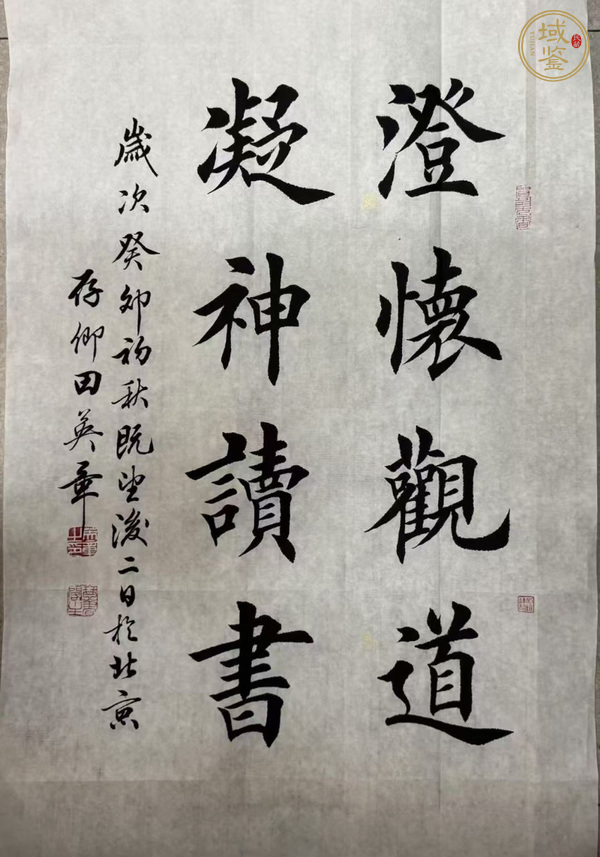 澄懷觀道
凝神讀書
歲次癸卯初秋既望後二日於北京
存卿田英章
域鉴